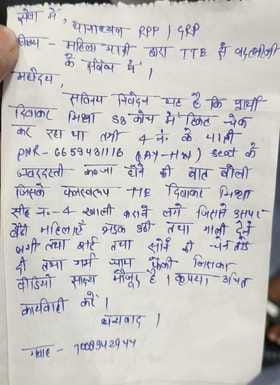 सेवा में,
थानाध्यक्ष RPF / GRP
विषय - महिला यात्री द्वारा TTE से बदतमीजी
के संबंध में ।
महोदय,
सविनय निवेदन यह है कि प्रार्थी
दिवाकर मिश्रा S8 कोच में टिकट चेक
कर रहा था तभी 4 नं० के यात्री
PNR - 6659481116 seat के
जबरदस्ती कब्जा होने की बात बोली
जिसके फलस्वरूप TTE दिवाकर मिश्रा
सीट नं०-4 खाली कराने लगे जिसमें
बैठी महिलाएँ भड़क उठी तथा गाली देने
लगी तथा शर्ट तथा सोने की चेन तोड़
दी तथा गर्म चाय फेंकी जिसका
वीडियो साक्ष्य मौजूद है । कृपया उचित
कार्यवाही करें ।
धन्यवाद ।